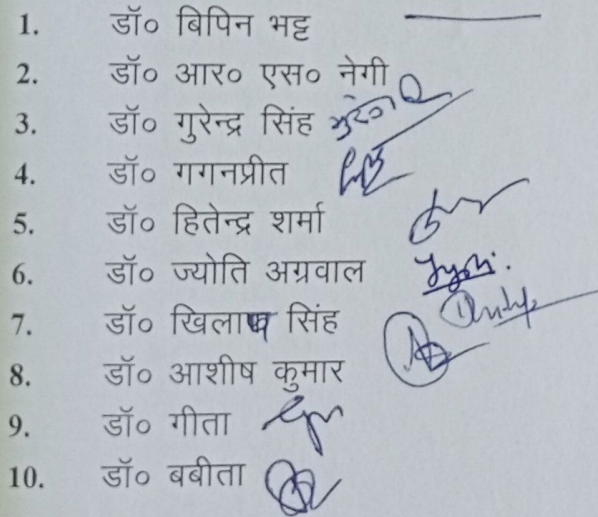 1. डॉ० बिपिन भट्ट
2. डॉ० आर० एस० नेगी
3. डॉ० गुरेन्द्र सिंह
4. डॉ० गगनप्रीत
5. डॉ० हितेन्द्र शर्मा
6. डॉ० ज्योति अग्रवाल Jyoti.
7. डॉ० खिलाप सिंह
8. डॉ० आशीष कुमार
9. डॉ० गीता
10. डॉ० बबीता